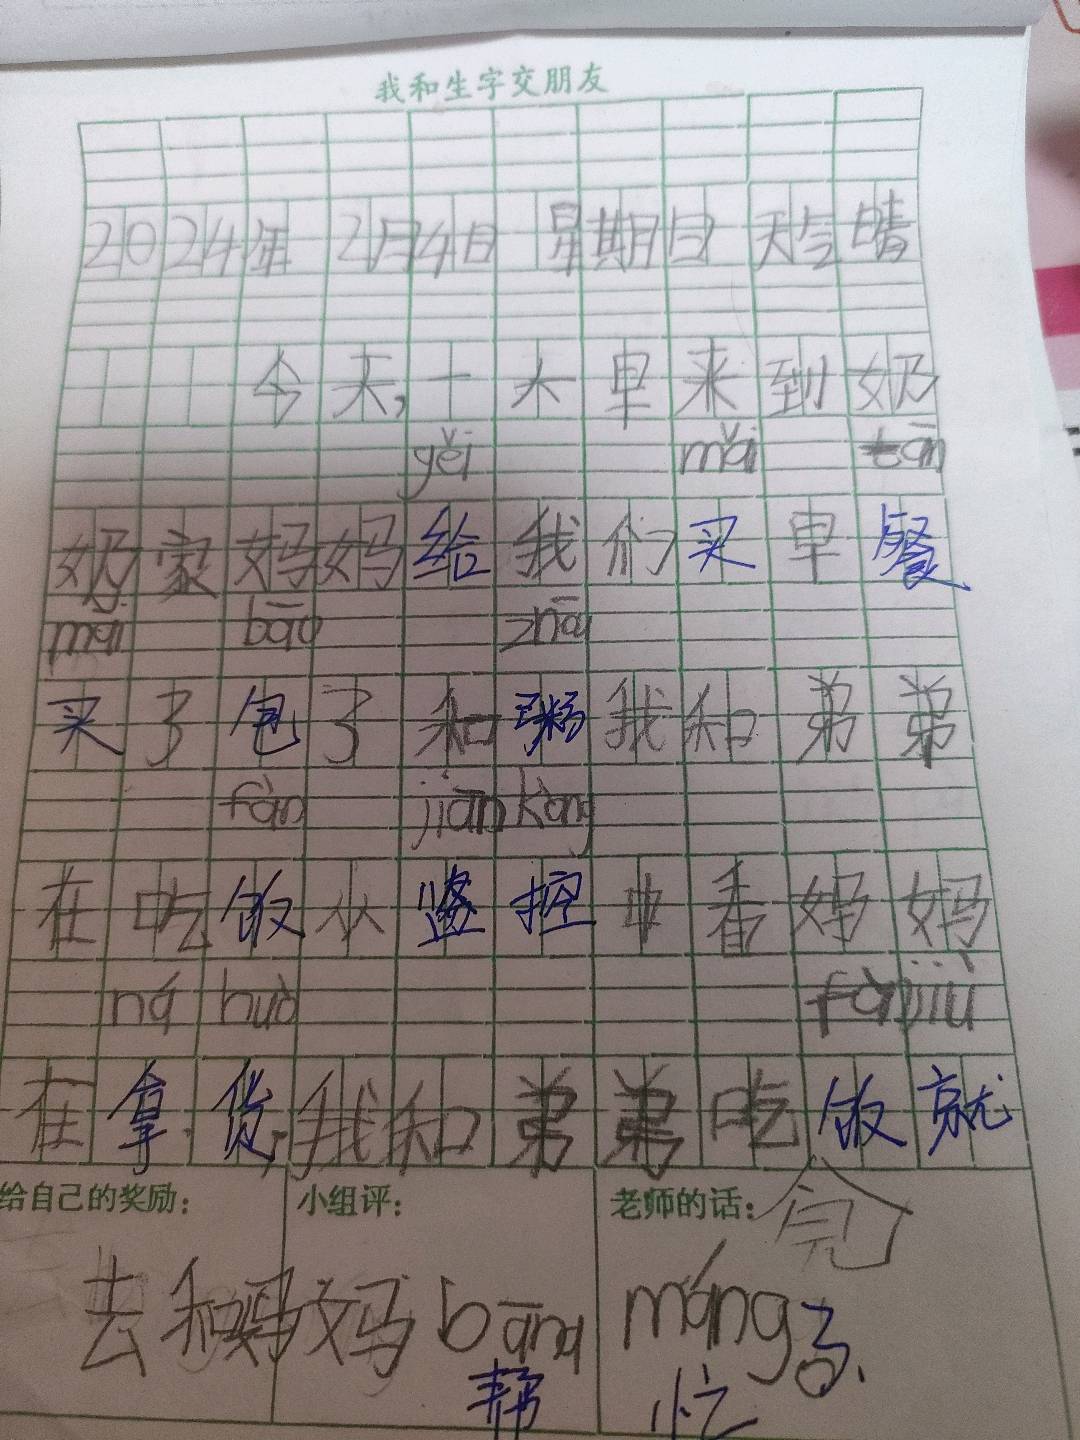 我和生字交朋友
2024年 2月4日 星期日 天气晴
今天,一大早来到奶
yěi mǎi tān
奶家妈妈给我们买早餐
mǎi bāo zhōu
买了包了和粥我和弟弟
fàn jiān kòng
在吃饭从监控中看妈妈
ná huò fàn jiù
在拿货,我和弟弟吃饭就
给自己的奖励: 小组评: 老师的话: 完
去和妈妈 bāng máng 了.
帮 忙